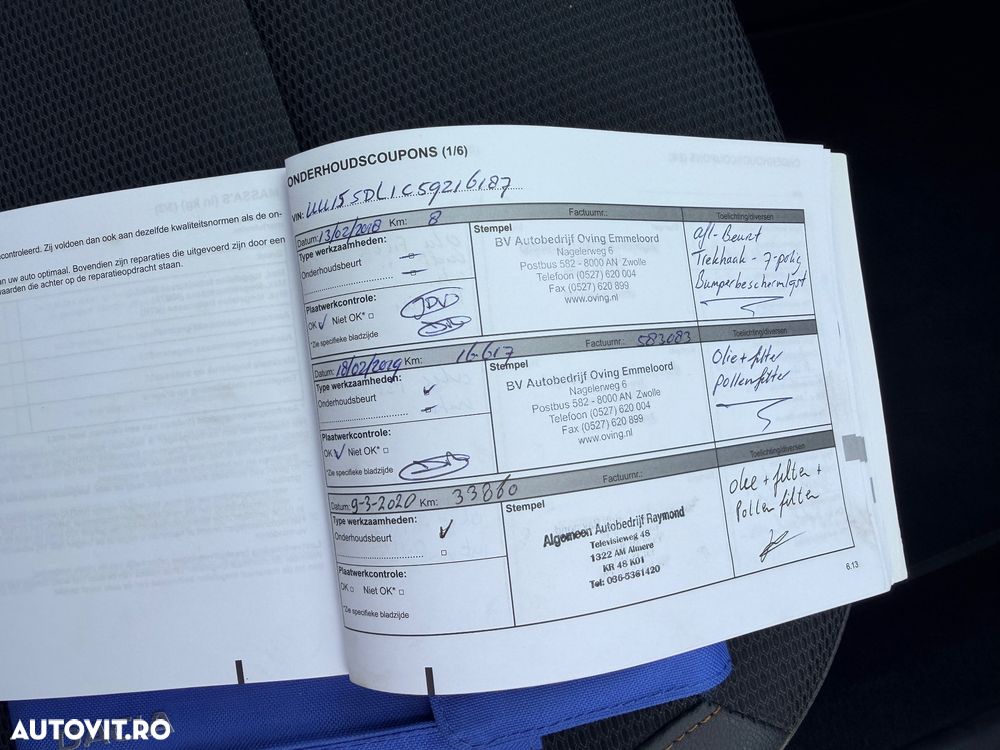 controleerd. Zij voldoen dan ook aan dezelfde kwaliteitsnormen als de on-
an uw auto optimaal. Bovendien zijn reparaties die uitgevoerd zijn door een
waarden die achter op de reparatieopdracht staan.
ONDERHOUDSCOUPONS (1/6)
VIN: UU15SDL1C59216187
Datum: 13/02/2018 Km: 8 Factuurnr.:
Type werkzaamheden:
Onderhoudsbeurt
Plaatwerkcontrole:
OK Niet OK*
*Zie specifieke bladzijde
Stempel
BV Autobedrijf Oving Emmeloord
Nagelerweg 6
Postbus 582 - 8000 AN Zwolle
Telefoon (0527) 620 004
Fax (0527) 620 899
www.oving.nl
Toelichting/diversen
Afl-Beurt
Trekhaak - 7-polig
Bumperbeschermlijst
Datum: 18/02/2019 Km: 16.617 Factuurnr.: 583083
Type werkzaamheden:
Onderhoudsbeurt
Plaatwerkcontrole:
OK Niet OK*
*Zie specifieke bladzijde
Stempel
BV Autobedrijf Oving Emmeloord
Nagelerweg 6
Postbus 582 - 8000 AN Zwolle
Telefoon (0527) 620 004
Fax (0527) 620 899
www.oving.nl
Toelichting/diversen
Olie + filter
pollenfilter
Datum: 9-3-2020 Km: 33860 Factuurnr.:
Type werkzaamheden:
Onderhoudsbeurt
Plaatwerkcontrole:
OK Niet OK*
*Zie specifieke bladzijde
Stempel
Algemeen Autobedrijf Raymond
Televisieweg 48
1322 AM Almere
KR 48 K01
Tel: 036-5361420
Toelichting/diversen
olie + filter +
Pollen filter
6.13
AUTOVIT.RO